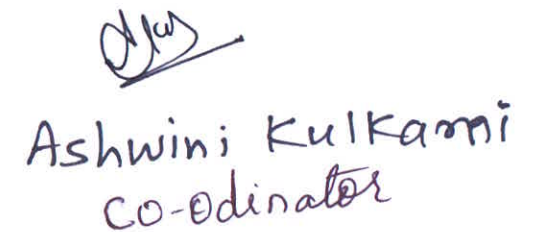 Ashwini Kulkarni
co-odinator